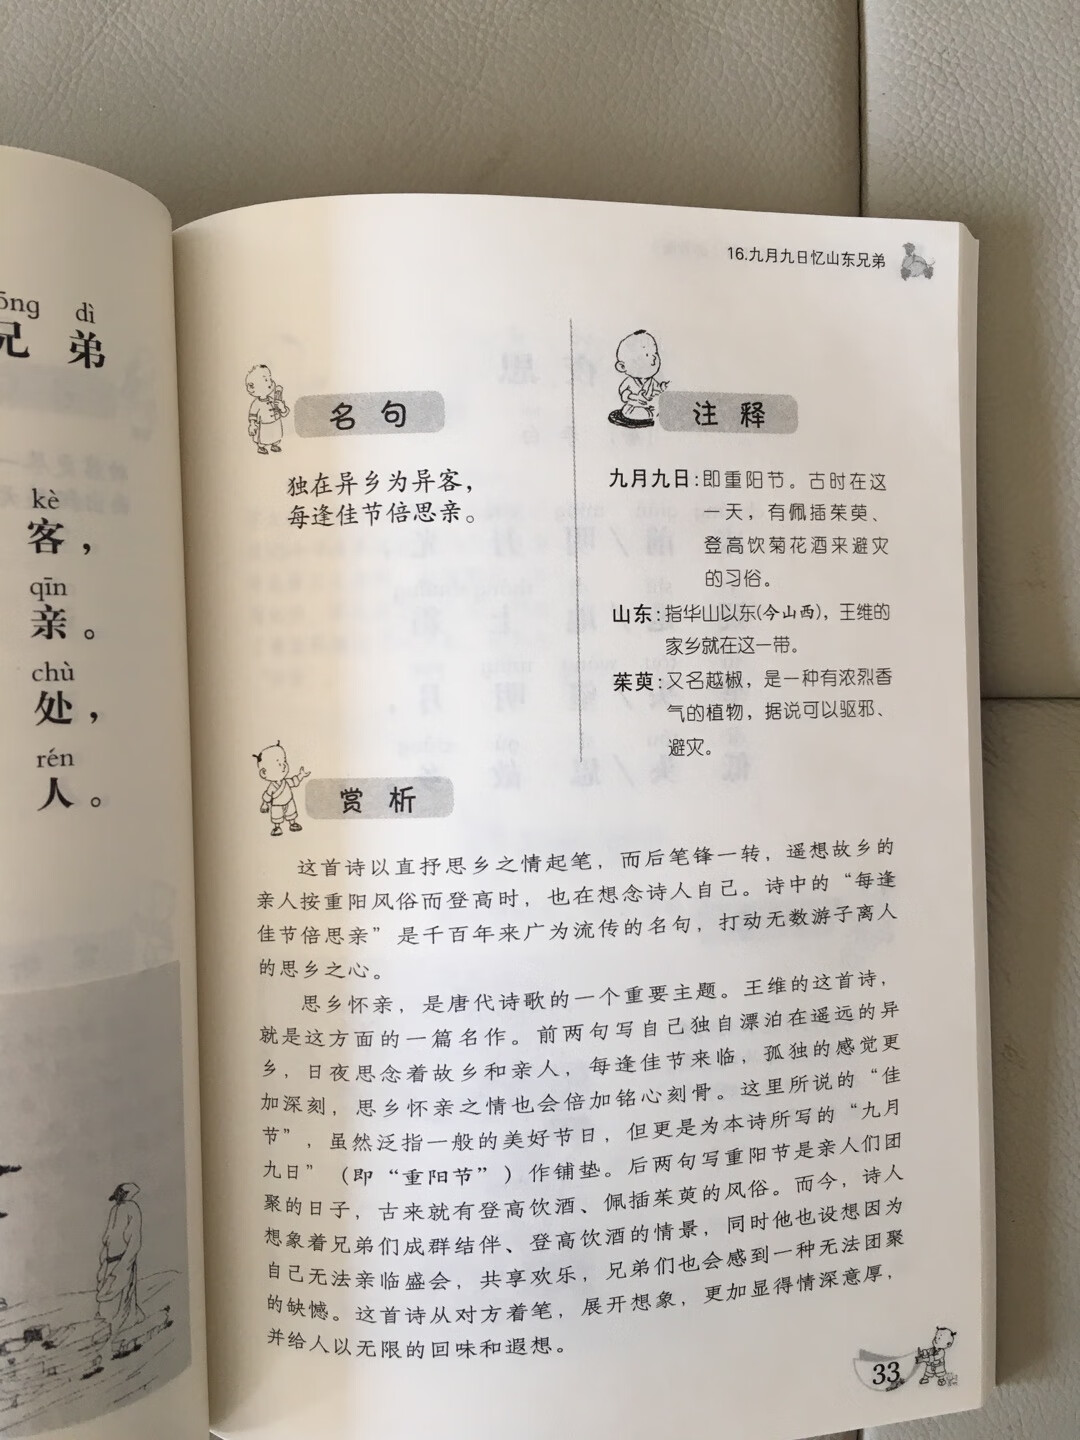 ōng dì
兄 弟
kè
客，
qīn
亲。
chù
处，
rén
人。
16.九月九日忆山东兄弟
名句
独在异乡为异客，
每逢佳节倍思亲。
注释
九月九日：即重阳节。古时在这
一天，有佩插茱萸、
登高饮菊花酒来避灾
的习俗。
山东：指华山以东(今山西)，王维的
家乡就在这一带。
茱萸：又名越椒，是一种有浓烈香
气的植物，据说可以驱邪、
避灾。
赏析
这首诗以直抒思乡之情起笔，而后笔锋一转，遥想故乡的
亲人按重阳风俗而登高时，也在想念诗人自己。诗中的“每逢
佳节倍思亲”是千百年来广为流传的名句，打动无数游子离人
的思乡之心。
思乡怀亲，是唐代诗歌的一个重要主题。王维的这首诗，
就是这方面的一篇名作。前两句写自己独自漂泊在遥远的异
乡，日夜思念着故乡和亲人，每逢佳节来临，孤独的感觉更
加深刻，思乡怀亲之情也会倍加铭心刻骨。这里所说的“佳
节”，虽然泛指一般的美好节日，但更是为本诗所写的“九月
九日”（即“重阳节”）作铺垫。后两句写重阳节是亲人们团
聚的日子，古来就有登高饮酒、佩插茱萸的风俗。而今，诗人
想象着兄弟们成群结伴、登高饮酒的情景，同时他也设想因为
自己无法亲临盛会，共享欢乐，兄弟们也会感到一种无法团聚
的缺憾。这首诗从对方着笔，展开想象，更加显得情深意厚，
并给人以无限的回味和遐想。
33